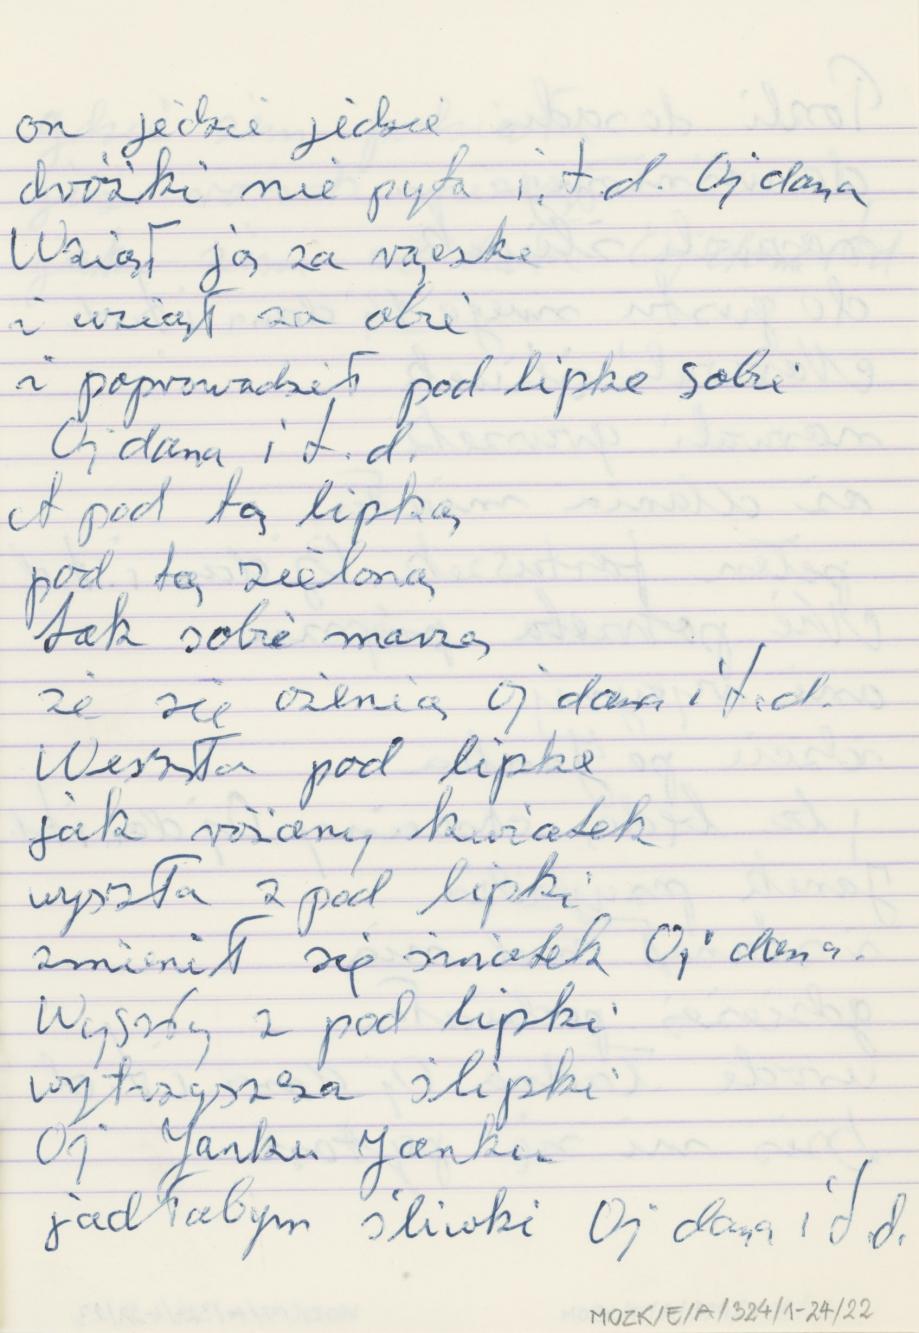 on jedzie jedzie
dróżki nie pyta i.t.d. Oj dana
Wziął ją za rączke
i wziął za obie
i poprowadził pod lipke sobie
Oj dana i t.d.
A pod tą lipką
pod tą zieloną
tak sobie marzą
że się ożenią Oj dana i t.d.
Weszła pod lipke
jak różany kwiatek
wyszła z pod lipki
zmienił się światek Oj dana.
Wyszły z pod lipki
wytrzyszcza ślipki
Oj Janku Janku
jadłabym śliwki Oj dana i t.d.
MOZK/E/A/324/1-24/22